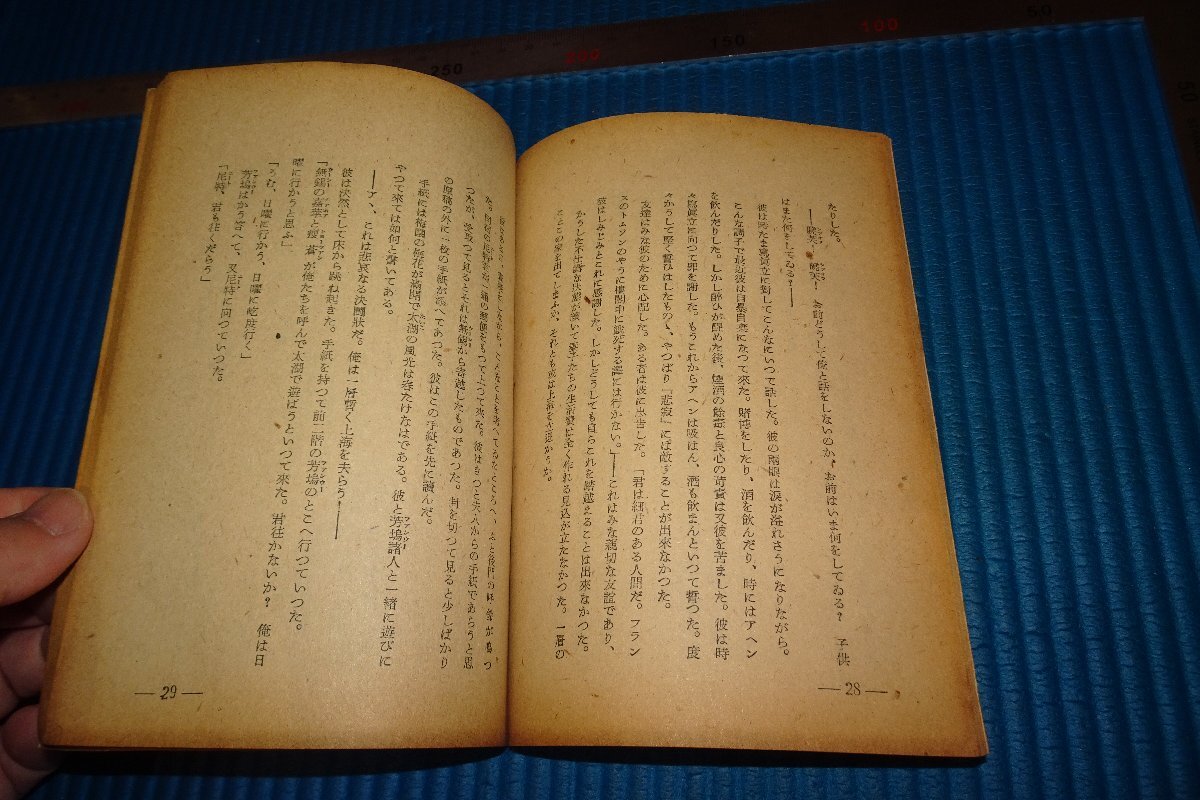 たりした。
――曉芙！　曉芙！　お前どうして俺と話をしないのか、お前はいま何をしてゐる？　子供
はまた何をしてゐる？――
彼は時たま寫眞立に對してこんなにいつて話した。彼の兩眼は涙が溢れさうになりながら。
こんな調子で最近彼は自暴自棄になつて來た。賭博をしたり、酒を飲んだり、時にはアヘン
を飲んだりした。しかし醉ひが醒めた後、煙酒の餘毒と良心の苛責は又彼を苦ました。彼は時
々寫眞立に向つて罪を謝した。もうこれからアヘンは吸はん、酒も飲まんといつて誓つた。度
々かうして堅く誓ひはしたものゝ、やつぱり「悲寂」には敵することが出來なかつた。
友達はみな彼のために心配した。ある者は彼に忠告した。「君は細君のある人間だ。フラン
スのトムソンのやうに樓閣中に餓死する譯には行かない。」――これはみな親切な友誼であり、
彼はしみじみとこれに感謝した。しかしどうしても自らこれを踏越えることは出來なかつた。
かうした不生產な狀態が續いて妻子たちの生活費は全く作れる見込が立たなかつた。一層の
ことこの家を出てしまふか、それとも或は上海を去らうか。
― 28 ―
た。
つたが、受取つて見るとそれは無錫から寄越したものであつた。封を切つて見ると少しばかり
の原稿の外に一枚の手紙が添へてあつた。彼はこの手紙を先に讀んだ。
手紙には梅園の梅花が滿開で太湖の風光は春たけなはである。彼と芳塢諸人と一緒に遊びに
やつて來ては如何と書いてある。
――アヽ、これは悲哀なる決鬪狀だ。俺は一層暫く上海を去らう！――
彼は決然として床から跳ね起きた。手紙を持つて前二階の芳塢のとこへ行つていつた。
「無錫の嘉華と蒼が俺たちを呼んで太湖で遊ばうといつて來た。君往かないか？　俺は日
曜に行かうと思ふ」
「うむ、日曜に行かう、日曜に屹度行く」
芳塢はかう答へて、又尼特に向つていつた。
「尼特、君も往くだらう」
― 29 ―
250
200
150
100
50